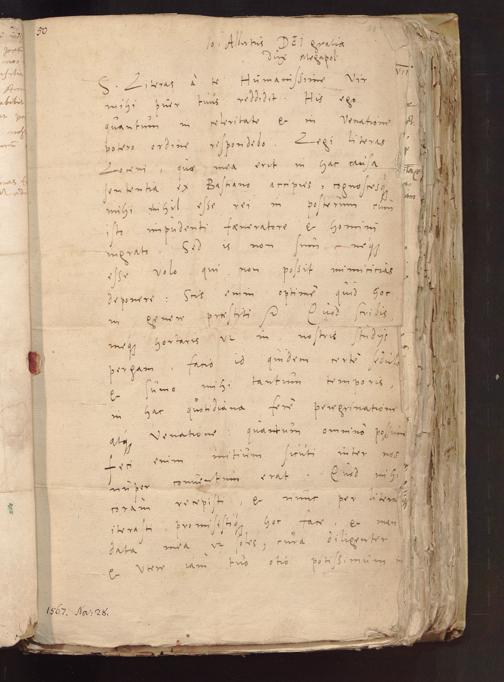 50
Io. Albertus DEI gratia
Dux Megapol
S. Literas à te Humanissime Vir
mihi puer tuus reddidit. His ego
quantum in celeritate & in Venatione
potero ordine respondebo. Legi literas
quae mea erit in hac causa
sententia ex Bastiano accipies, cognosces
mihi nihil esse rei in posterum cum
isto impudenti faeneratore & homini
ingrato. Sed is non sum neq3
esse volo qui non possit inimicitias
deponere: Scis enim optimè quid hoc
in genere praestiti Quod scribis
meq3 hortaris ut in nostris studijs
pergam, facio id quidem certè sedulo
& sumo mihi tantum temporis,
in hac quotidiana ferè peregrinatione
atq3 Venatione quantum omnino possum
feci enim initium sicuti inter nos
nuper conventum erat. Quod mihi
coràm recepisti, & nunc per litera
iterasti promisistiq3 hoc face, & man
data mea ut soles, cura diligenter
& vere iam tuo otio potissimum
1567. Nov: 28.